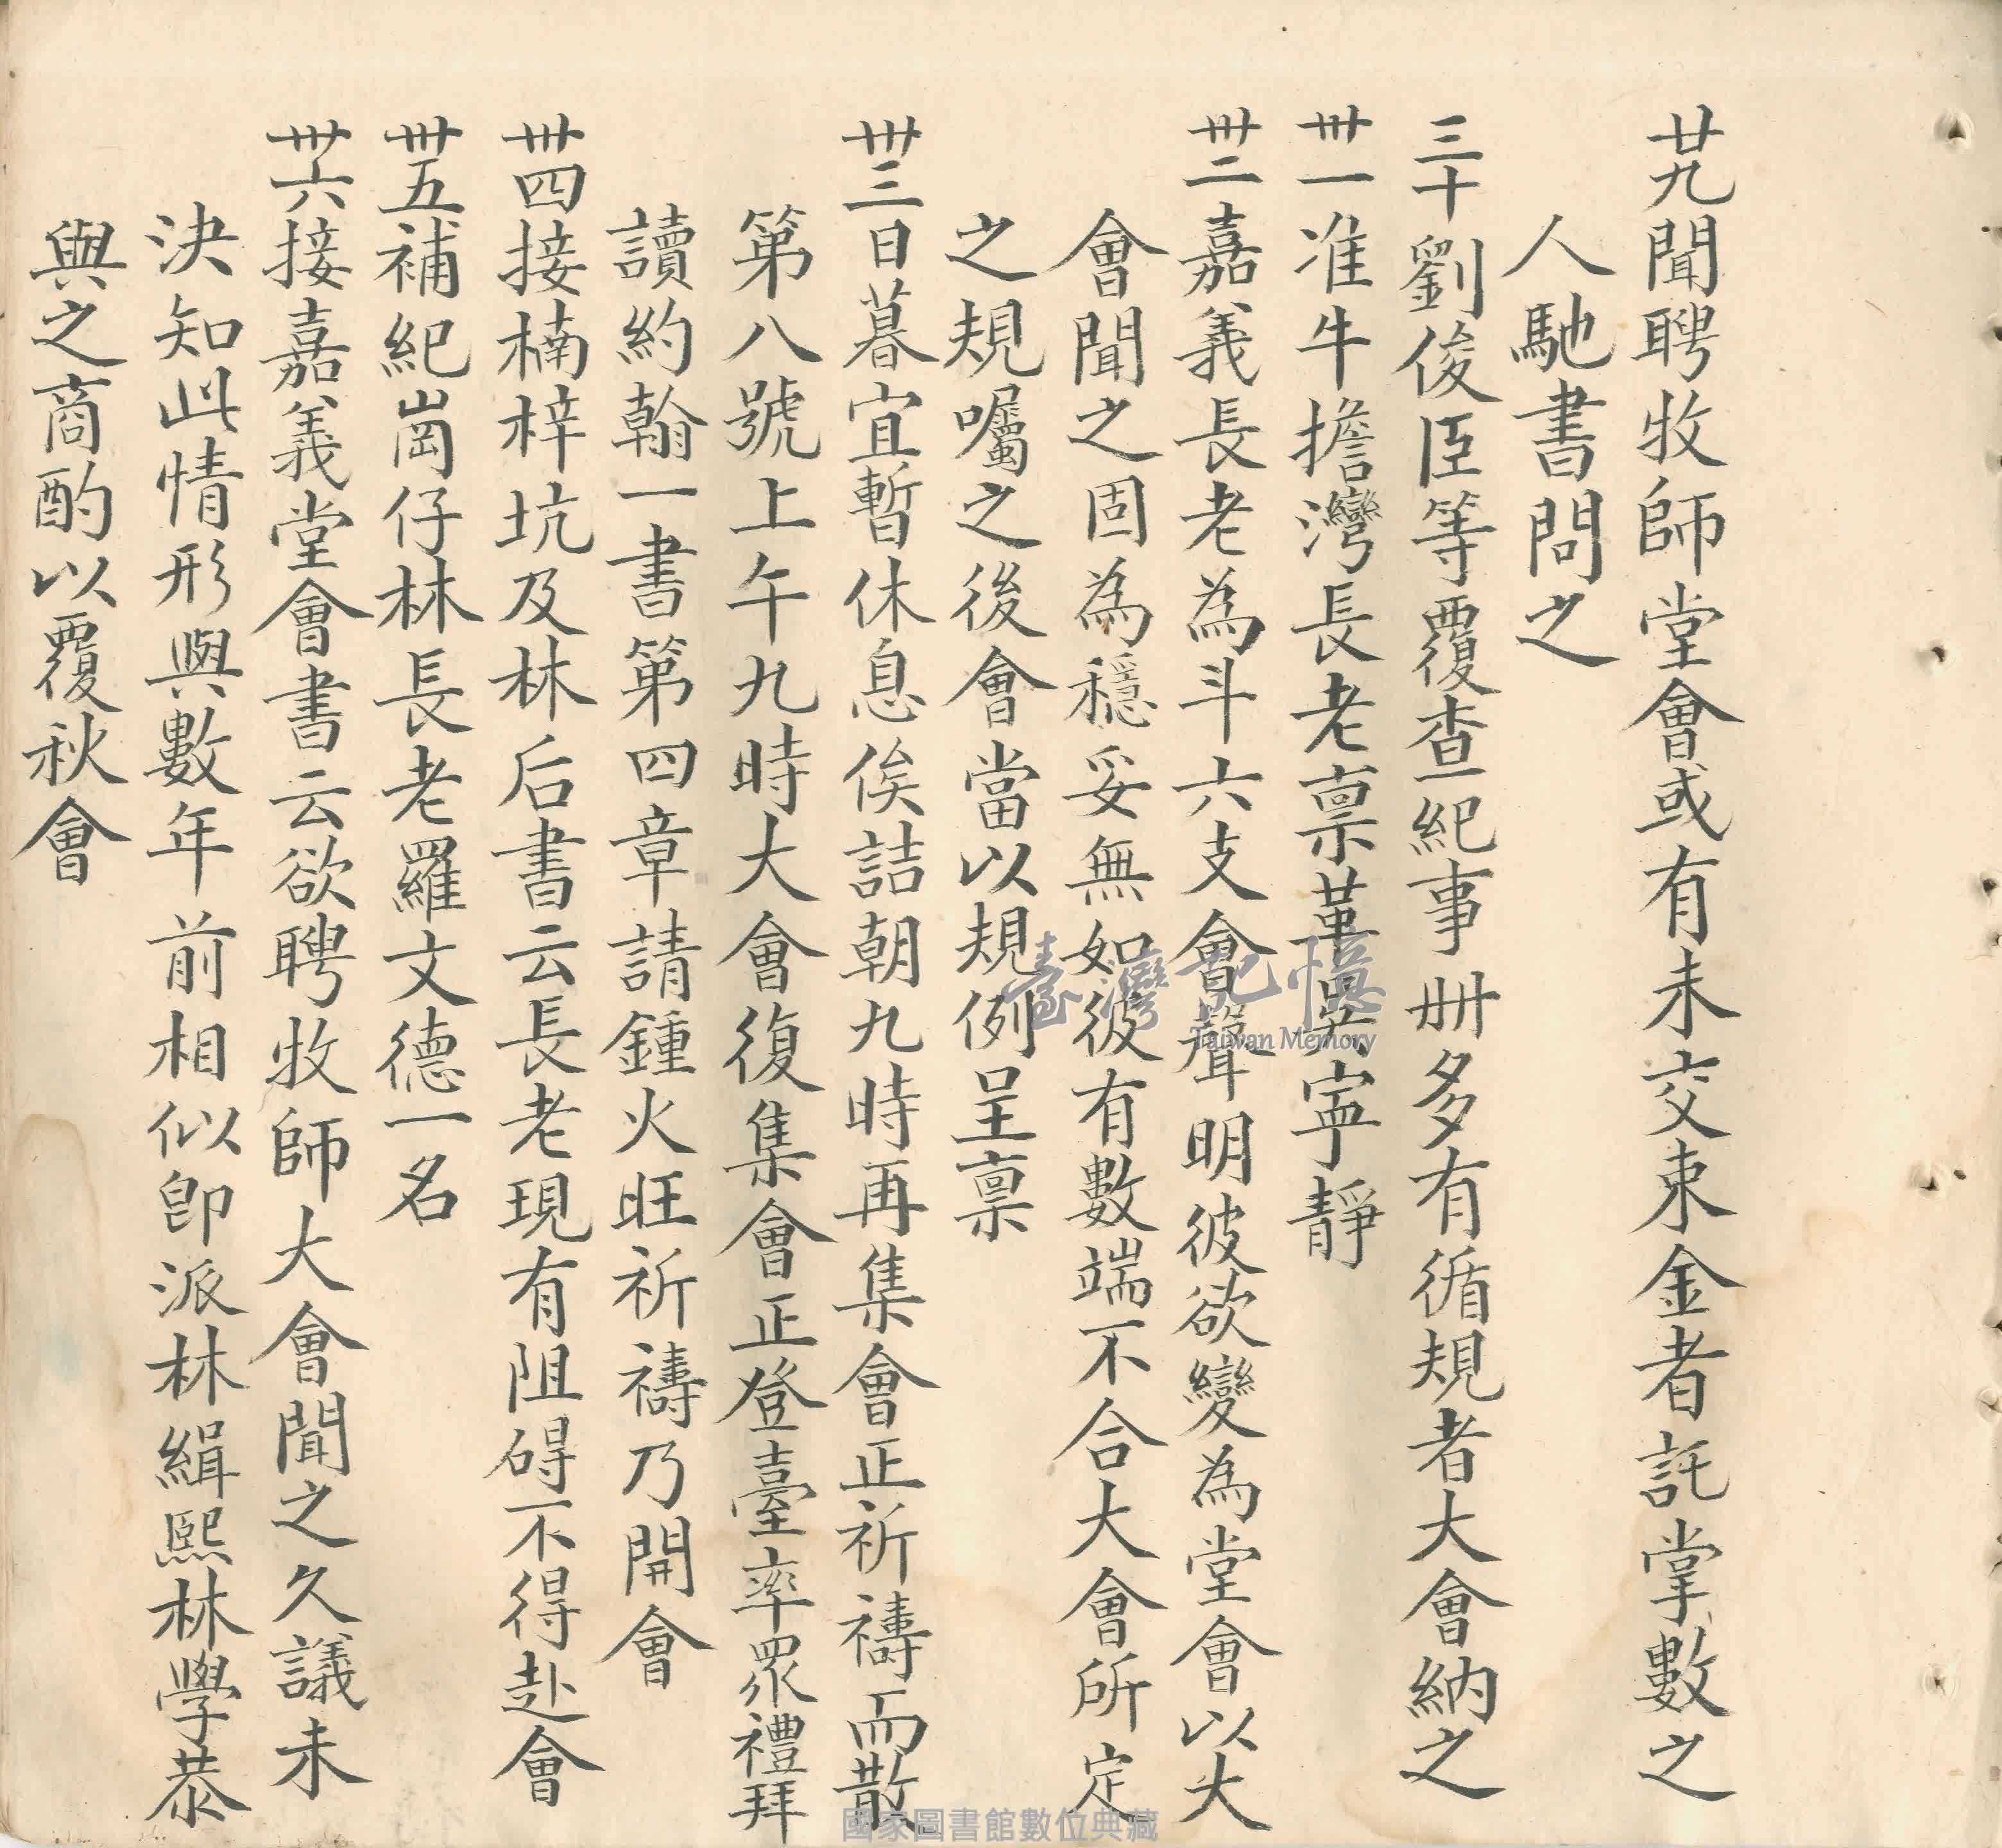 廿九聞聘牧師堂會或有未交束金者託掌數之
人馳書問之
三十劉俊臣等覆查紀事冊多有循規者大會納之
卅一准牛擔灣長老稟革吳寧靜
卅二嘉義長老為斗六支會聲明彼欲變為堂會以大
會聞之固為穩妥無如彼有數端不合大會所定
之規囑之後會當以規例呈稟
卅三日暮宜暫休息俟詰朝九時再集會正祈禱而散
第八號上午九時大會復集會正登臺率眾禮拜
讀約翰一書第四章請鍾火旺祈禱乃開會
卅四接楠梓坑及林后書云長老現有阻碍不得赴會
卅五補紀崗仔林長老羅文德一名
卅六接嘉義堂會書云欲聘牧師大會聞之久議未
決知此情形與數年前相似卽派林緝熙林學恭
與之商酌以覆秋會
臺灣記憶
Taiwan Memory
國家圖書館數位典藏